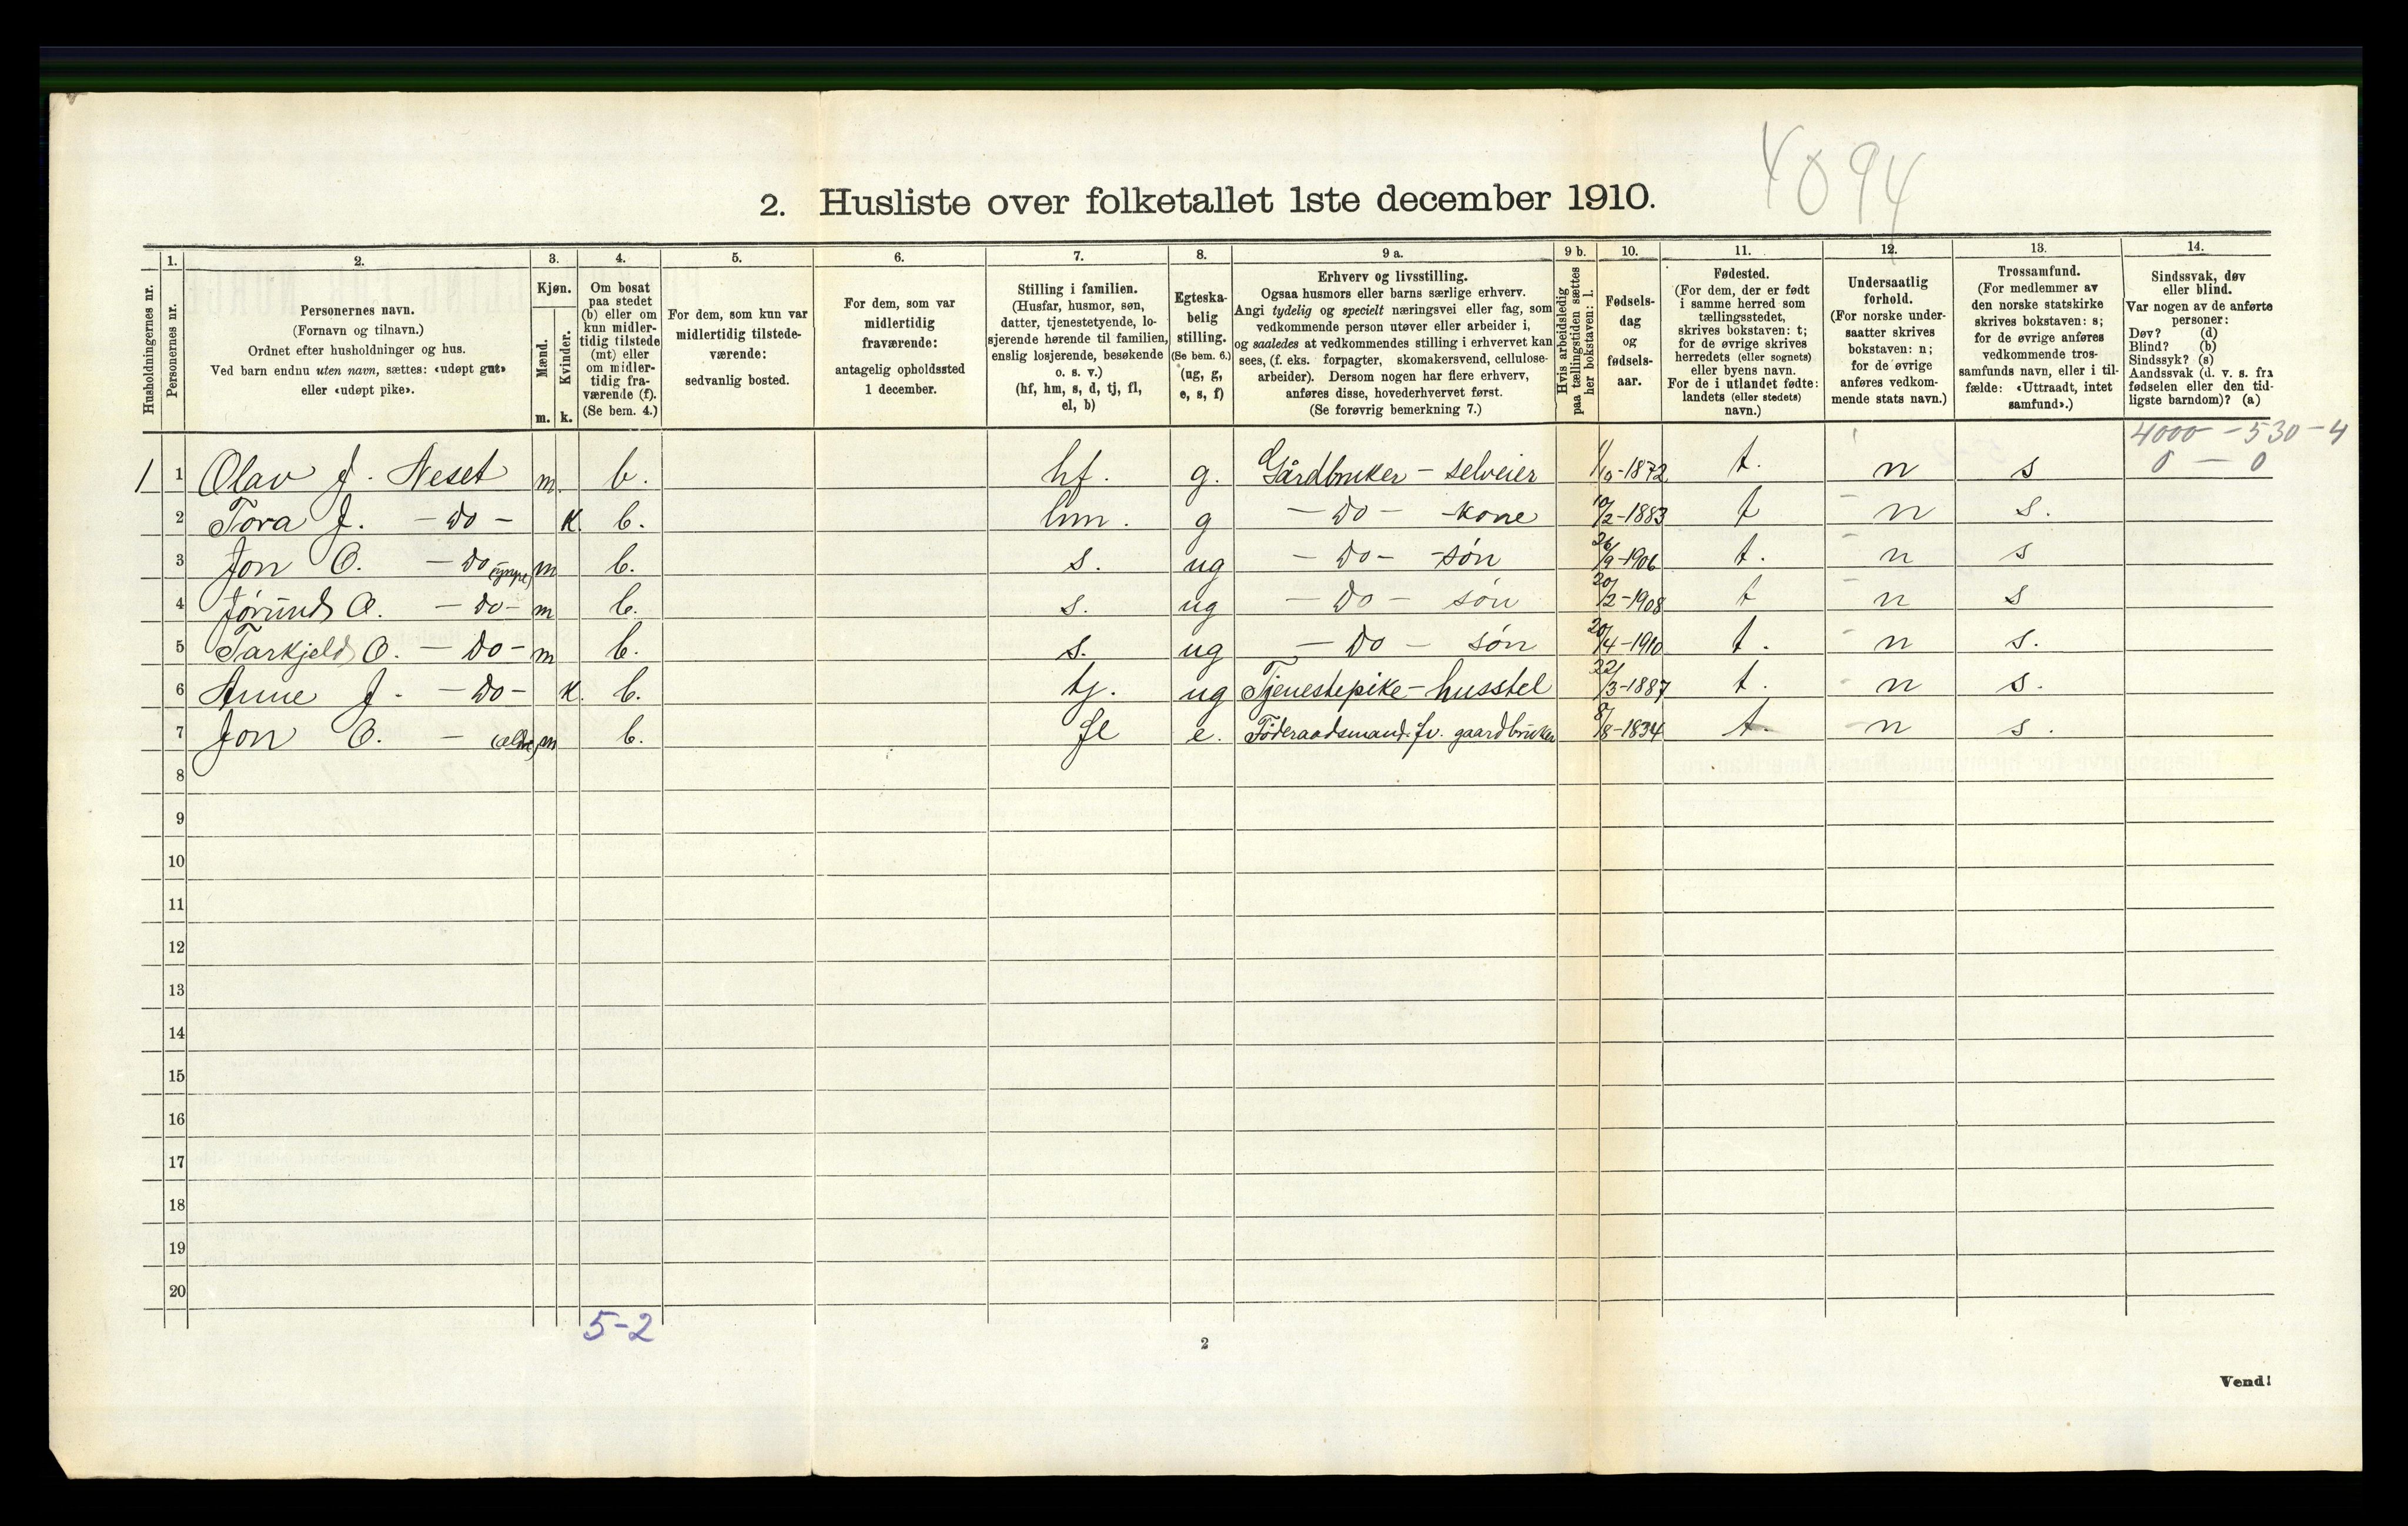 4094
2. Husliste over folketallet 1ste december 1910.
Husholdningernes nr.
1.
Personernes nr.
2.
Personernes navn.
(Fornavn og tilnavn.)
Ordnet efter husholdninger og hus.
Ved barn endnu uten navn, sættes: «udøpt gut»
eller «udøpt pike».
3.
Kjøn.
Mænd.
Kvinder.
m. k.
4.
Om bosat
paa stedet
(b) eller om
kun midler-
tidig tilstede
(mt) eller
om midler-
tidig fra-
værende (f).
(Se bem. 4.)
5.
For dem, som kun var
midlertidig tilstede-
værende:
sedvanlig bosted.
6.
For dem, som var
midlertidig
fraværende:
antagelig opholdssted
1 december.
7.
Stilling i familien.
(Husfar, husmor, søn,
datter, tjenestetyende, lo-
sjerende hørende til familien,
enslig losjerende, besøkende
o. s. v.)
(hf, hm, s, d, tj, fl,
el, b)
8.
Egteska-
belig
stilling.
(Se bem. 6.)
(ug, g,
e, s, f)
9 a.
Erhverv og livsstilling.
Ogsaa husmors eller barns særlige erhverv.
Angi tydelig og specielt næringsvei eller fag, som
vedkommende person utøver eller arbeider i,
og saaledes at vedkommendes stilling i erhvervet kan
sees, (f. eks. forpagter, skomakersvend, cellulose-
arbeider). Dersom nogen har flere erhverv,
anføres disse, hovederhvervet først.
(Se forøvrig bemerkning 7.)
9 b.
Hvis arbeidsledig
paa tællingstiden sættes
her bokstaven: l.
10.
Fødsels-
dag
og
fødsels-
aar.
11.
Fødested.
(For dem, der er født
i samme herred som
tællingsstedet,
skrives bokstaven: t;
for de øvrige skrives
herredets (eller sognets)
eller byens navn.
For de i utlandet fødte:
landets (eller stedets)
navn.)
12.
Undersaatlig
forhold.
(For norske under-
saatter skrives
bokstaven: n;
for de øvrige
anføres vedkom-
mende stats navn.)
13.
Trossamfund.
(For medlemmer av
den norske statskirke
skrives bokstaven: s;
for de øvrige anføres
vedkommende tros-
samfunds navn, eller i til-
fælde: «Uttraadt, intet
samfund».)
14.
Sindssvak, døv
eller blind.
Var nogen av de anførte
personer:
Døv? (d)
Blind? (b)
Sindssyk? (s)
Aandssvak (d. v. s. fra
fødselen eller den tid-
ligste barndom)? (a)
4000 - 530 - 4
0 - 0
1 1 Olav J. Neset m. b. hf. g. Gårdbruker - selveier 1/10-1872 t. n s
2 Tora J. - Do - k. b. hm. g - Do - -kone 10/2-1883 t n s.
3 Jon O. - Do (yngre) m b. s. ug - Do - -søn 26/9-1906 t. n s
4 Jørund O. - Do - m b. s. ug - Do - søn 20/2-1908 t n s
5 Tarkjeld O. - Do - m b. s. ug - Do - søn 20/4-1910 t. n s.
6 Anne J. - Do - k. b. tj. ug Tjenestepike - husstel 22/3-1887 t. n s.
7 Jon O. - (ældre) m b. fl e. Føderaadsmand. fv. gaardbruker 8/8-1834 t. n s.
8
9
10
11
12
13
14
15
16
17
18
19
20
5-2
2
Vend!